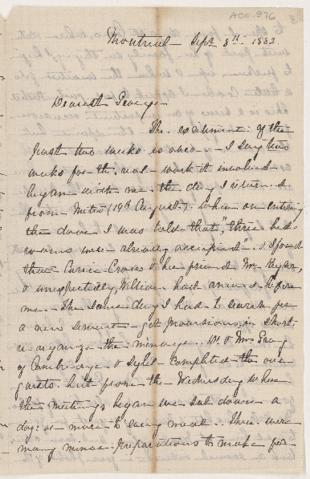 ACC. 976
Montreal - Sept 3rd. 1882
Dearest George -
The excitement of the
past two weeks is over - I say two
weeks for the real work it involved
began with me the day I returned
from Metis (19th August). When on entering
the door I was told that "three bed
rooms were already occupied". I found
there Carrie Cross & her friend Mr
& unexpectedly William had arrived before
me. The same day I had to search for
a new servant - get provisions in short
organize the menage. Dr & Mrs Gray
of Cambridge & completed the
guests but from the Wednesday when
the Meetings began we sat down a
day
many minor preparations to make for